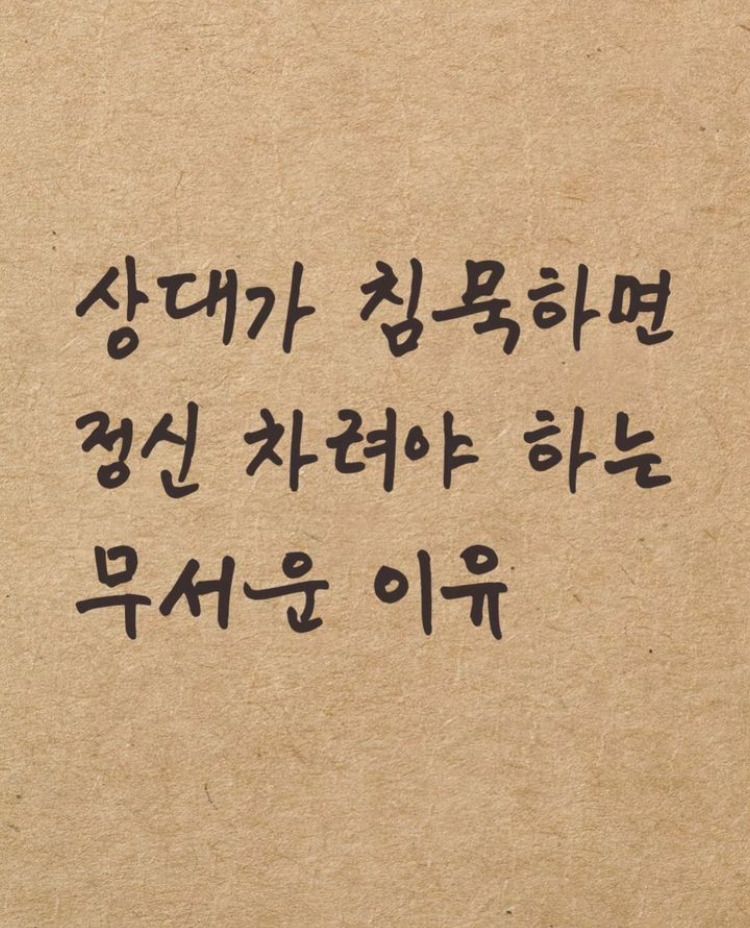 상대가 침묵하면
정신 차려야 하는
무서운 이유